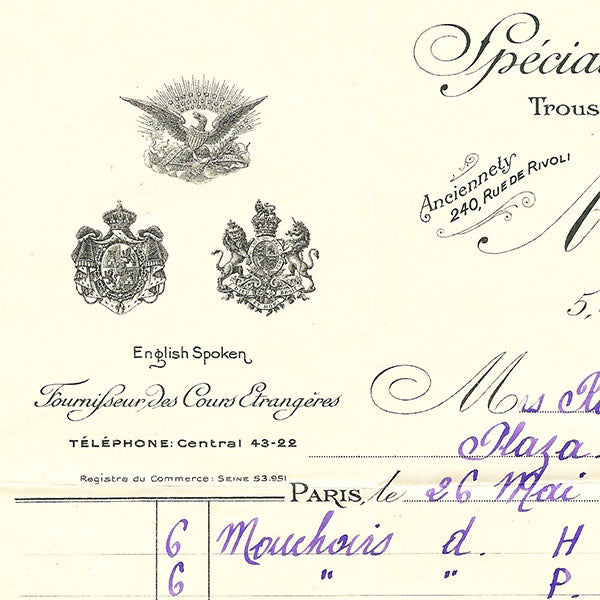 Spécial
Trous
Anciennety
240, RUE DE RIVOLI
5,
English Spoken
Fournisseur des Cours Etrangères
TÉLÉPHONE: Central 43-22
Registre du Commerce: SEINE 53.951
Mrs
Plaza
PARIS, le 26 Mai
6 Mouchoirs d. H
6 " " P.